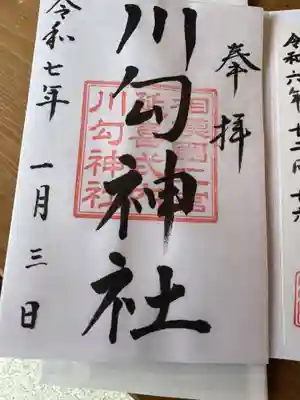 奉拝
川勾神社
相模國二之宮
延喜式内
川勾神社
令和七年 一月三日
令和六年十二月十六